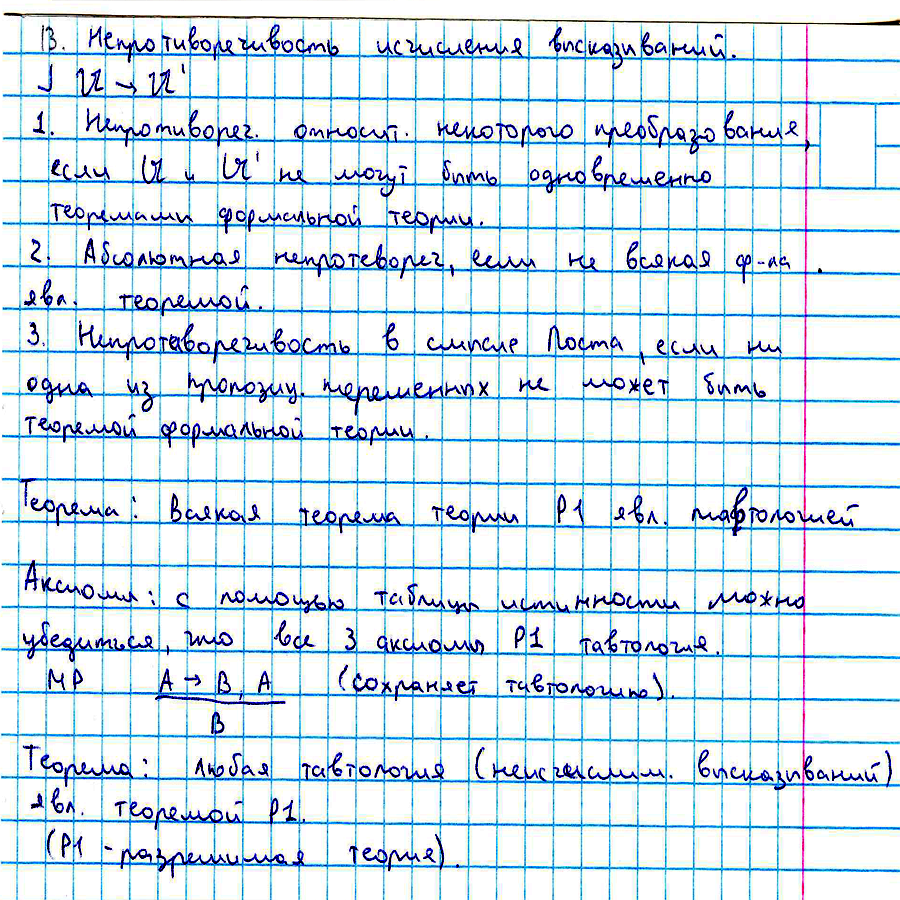 В. Непротиворечивость исчисления высказываний.
] 𝔄 → 𝔄'
1. Непротивореч. относит. некоторого преобразования,
если 𝔄 и 𝔄' не могут быть одновременно
теоремами формальной теории.
2. Абсолютная непротевореч, если не всякая ф-ла
явл. теоремой.
3. Непротиворечивость в смысле Поста, если ни
одна из пропозиц. переменных не может быть
теоремой формальной теории.
Теорема: Всякая теорема теории P1 явл. тавтологией
Аксиомы: с помощью таблицы истинности можно
убедиться, что все 3 аксиомы P1 тавтология.
MP A → B, A (сохраняет тавтологию).
B
Теорема: любая тавтология высказываний)
явл. теоремой P1.
(P1 - разрешимая теория).